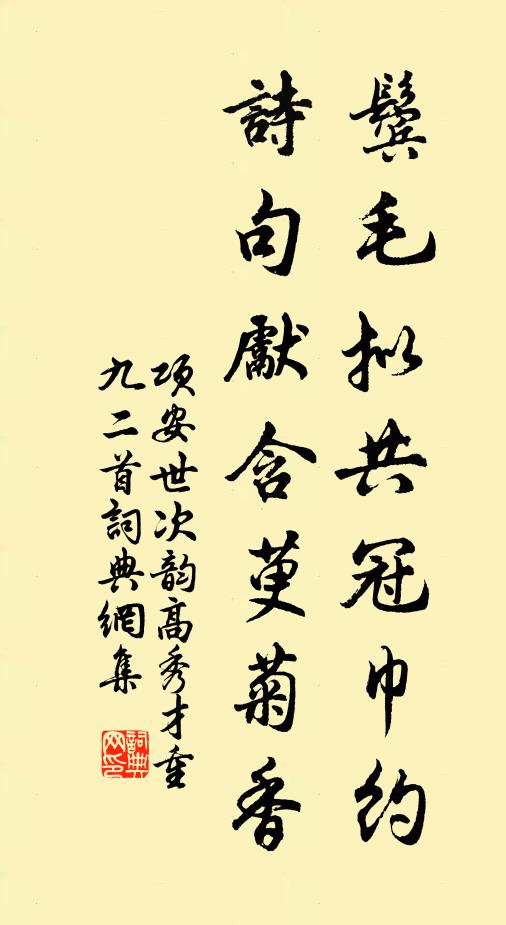 鬓毛拟共冠巾约
詩句獻含萸菊香
项安世次韵高秀才重
九二首詞典網集
詞典
网印